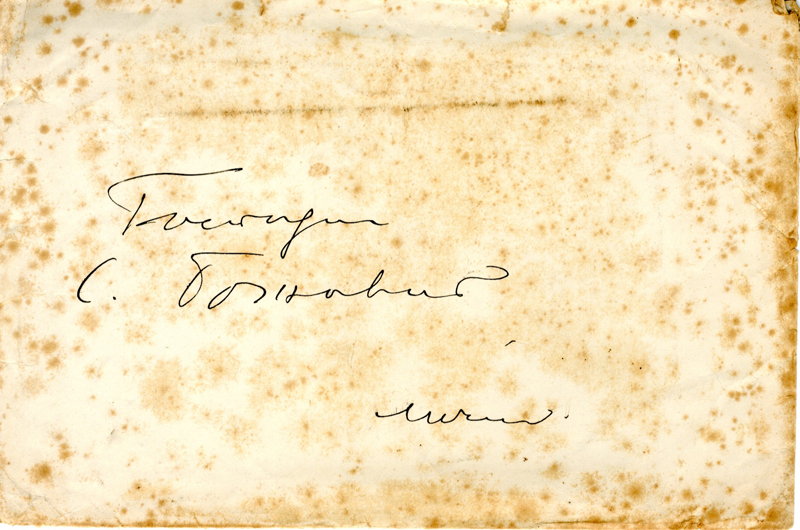 Господин
С. Божовић
лично.